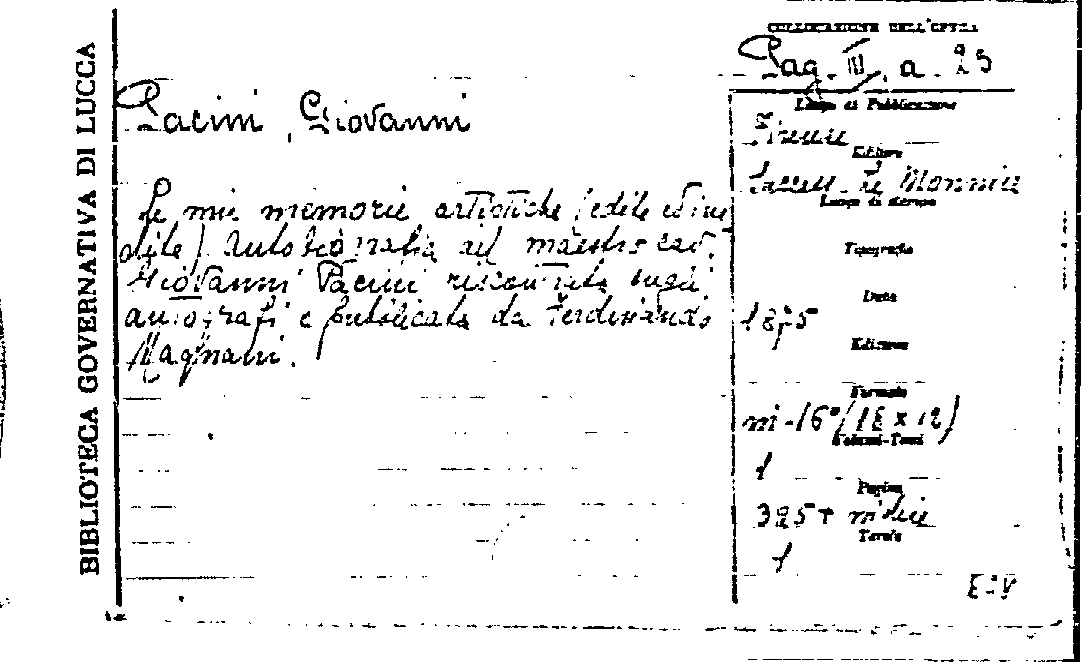 BIBLIOTECA GOVERNATIVA DI LUCCA
COLLOCAZIONE DELL'OPERA
Pag. III. a. 25
Pacini, Giovanni
Le mie memorie artistiche (edite ed ine
dite) Autobiografia del maestro cav.
Giovanni Pacini riscontrata sugli
autografi e pubblicata da Ferdinando
Magnani.
Luogo di Pubblicazione
Firenze
Editore
Success. Le Monnier
Luogo di stampa
Tipografia
Data
1875
Edizione
Formato
in-16° (18 x 12)
Volumi-Tomi
1
Pagine
325 + indice
Tavole
1